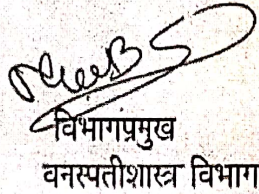 विभागप्रमुख
वनस्पतीशास्त्र विभाग